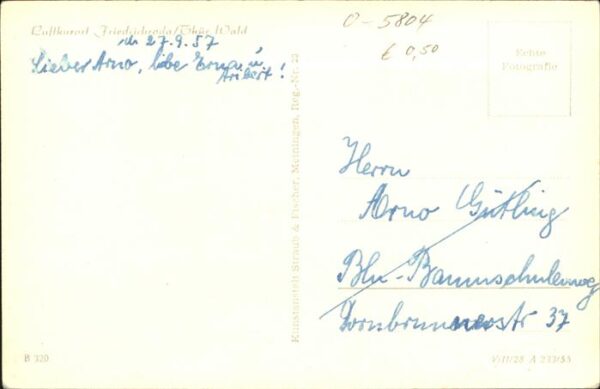 Luftkurort Friedrichroda/Thür. Wald
27.9.57
Lieber Arno, liebe Erna u
Aribert!
O-5804
€ 0,50
Echte
Fotografie
Kunstanstalt Straub & Fischer, Meiningen, Reg.-Nr. 23
Herrn
Arno Gütling
Bln-Baumschulenweg
37
B 320
V/11/28 A 233/55